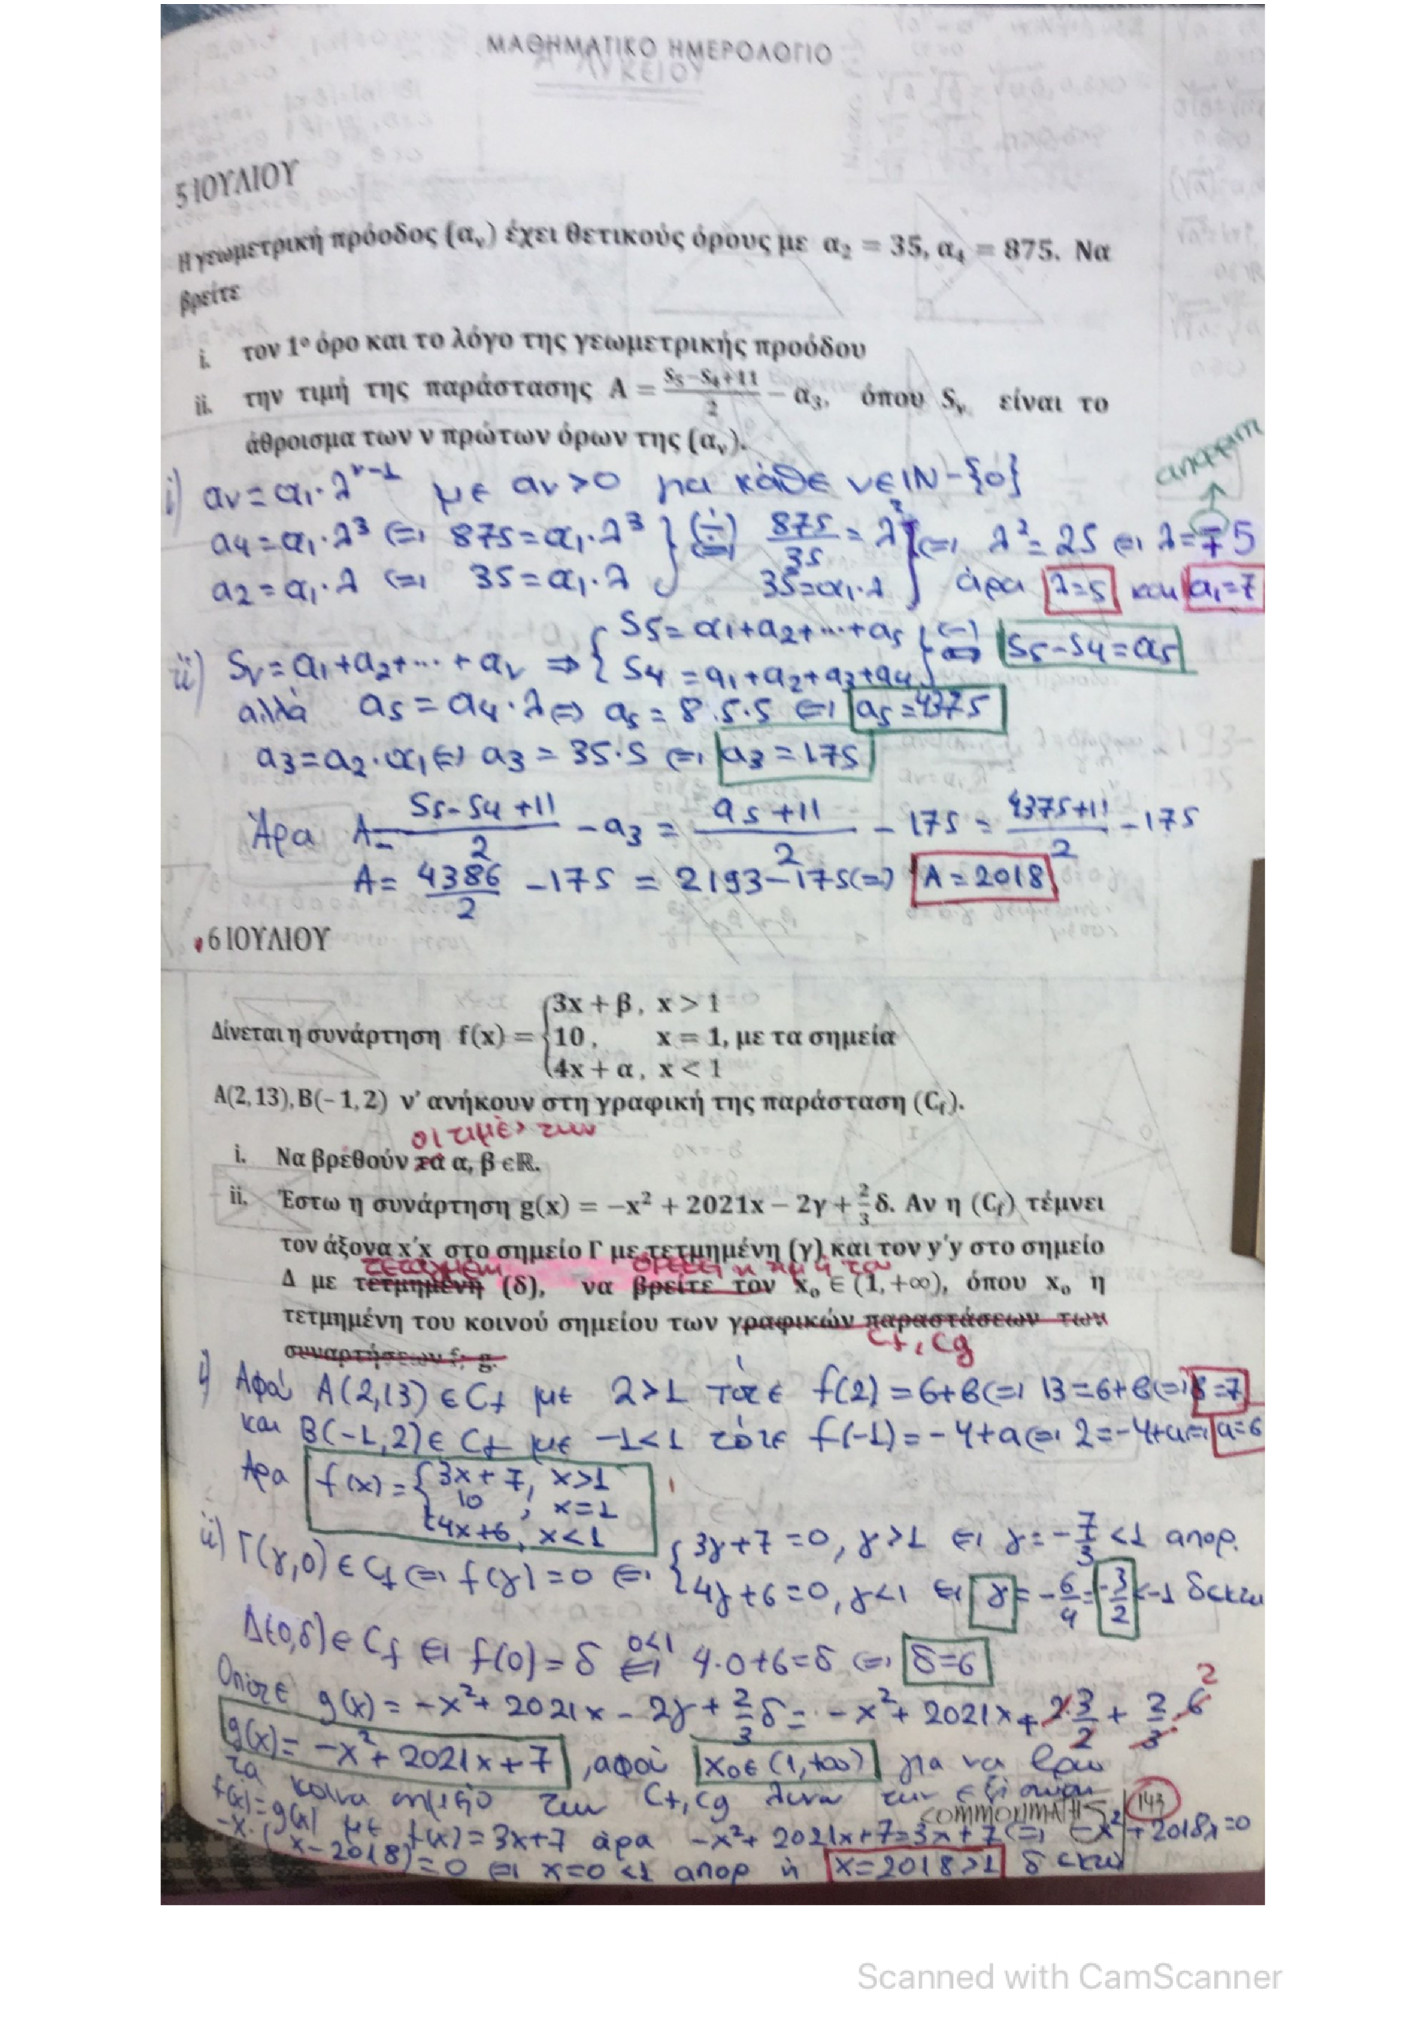 ΜΑΘΗΜΑΤΙΚΟ ΗΜΕΡΟΛΟΓΙΟ
Α ΛΥΚΕΙΟΥ
5 ΙΟΥΛΙΟΥ
Η γεωμετρική πρόοδος (αᵥ) έχει θετικούς όρους με α₂ = 35, α₄ = 875. Να
βρείτε
i. τον 1º όρο και το λόγο της γεωμετρικής προόδου
ii. την τιμή της παράστασης Α = (S₅−S₄+11)/2 − α₃, όπου Sᵥ είναι το
άθροισμα των ν πρώτων όρων της (αᵥ).
i) αν = α₁·λ^(ν-1) με αν > 0 για κάθε ν∈ΙΝ-{0}
α4 = α₁·λ³ ⇔ 875 = α₁·λ³ } (÷) ⇔ 875/35 = λ² } ⇔ λ² = 25 ⇔ λ = ∓5
α2 = α₁·λ ⇔ 35 = α₁·λ 35 = α₁·λ άρα λ=5 και α₁=7
ii) Sν = α₁+α₂+...+αν ⇒ { S5 = α₁+α₂+...+α5 } (-) ⇔ S5-S4 = α5
S4 = α₁+α₂+α3+α4
αλλά α5 = α4·λ ⇔ α5 = 8 5·5 ⇔ α5 = 4375
α3 = α2·α₁ ⇔ α3 = 35·5 ⇔ α3 = 175
Άρα Α = (S5-S4+11)/2 - α3 = (α5+11)/2 - 175 = (4375+11)/2 - 175
Α = 4386/2 - 175 = 2193-175 ⇔ Α = 2018
6 ΙΟΥΛΙΟΥ
Δίνεται η συνάρτηση f(x) = {3x + β, x > 1
10, x = 1, με τα σημεία
4x + α, x < 1
Α(2,13), Β(−1,2) ν' ανήκουν στη γραφική της παράσταση (C_f).
οι τιμές των
i. Να βρεθούν τα α, β ∈ ℝ.
ii. Έστω η συνάρτηση g(x) = −x² + 2021x − 2γ + 2/3 δ. Αν η (C_f) τέμνει
τον άξονα x'x στο σημείο Γ με τετμημένη (γ) και τον y'y στο σημείο
Δ με τετμημένη (δ), να βρείτε τον x₀ ∈ (1, +∞), όπου x₀ η
τετμημένη του κοινού σημείου των γραφικών παραστάσεων των
Cf, Cg
συναρτήσεων f, g.
i) Αφού Α(2,13) ∈ Cf με 2>1 τότε f(2) = 6+β ⇔ 13 = 6+β ⇔ β=7
και Β(-1,2) ∈ Cf με -1<1 τότε f(-1) = -4+α ⇔ 2 = -4+α ⇔ α=6
Άρα f(x) = { 3x+7, x>1
10, x=1
4x+6, x<1
ii) Γ(γ,0) ∈ Cf ⇔ f(γ) = 0 ⇔ { 3γ+7 = 0, γ>1 ⇔ γ = -7/3 <1 απορ.
4γ+6 = 0, γ<1 ⇔ γ = -6/4 = -3/2 <-1 δεκτη
Δ(0,δ) ∈ Cf ⇔ f(0) = δ ⇔ (0<1) 4·0+6 = δ ⇔ δ=6
Οπότε g(x) = -x²+2021x-2γ+2/3 δ = -x²+2021x+2·3/2+2/3·6 2
g(x) = -x²+2021x+7, αφού x₀∈(1,+∞) για να βρω
τα κοινα σημειο των Cf, Cg λυνω την εξισωση
f(x)=g(x) με f(x)=3x+7 άρα -x²+2021x+7=3x+7 ⇔ -x²+2018x=0
COMMONMATHS 143
-x·(x-2018)=0 ⇔ x=0 <1 απορ ή x=2018>1 δεκτη
Scanned with CamScanner